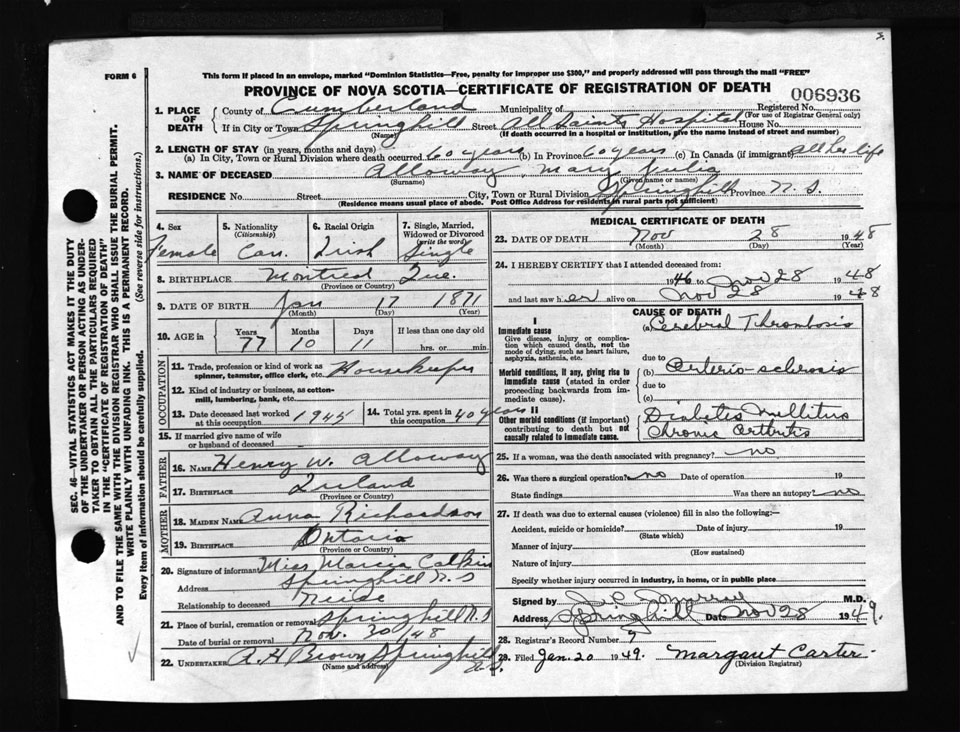 3.
FORM 6
This form if placed in an envelope, marked "Dominion Statistics—Free, penalty for improper use $300," and properly addressed will pass through the mail "FREE"
PROVINCE OF NOVA SCOTIA—CERTIFICATE OF REGISTRATION OF DEATH
006936
1. PLACE OF DEATH
County of Cumberland Municipality of Registered No.
(For use of Registrar General only)
If in City or Town Springhill Street All Saints Hospital House No.
(Name) (If death occurred in a hospital or institution, give the name instead of street and number)
2. LENGTH OF STAY (in years, months and days)
(a) In City, Town or Rural Division where death occurred 60 years (b) In Province 60 years (c) In Canada (if immigrant) All her life
3. NAME OF DECEASED Alloway, Mary Julia
(Surname) (Given name or names)
RESIDENCE No. Street City, Town or Rural Division Springhill Province N. S.
(Residence means usual place of abode. Post Office Address for residents in rural parts not sufficient)
4. Sex Female
5. Nationality (Citizenship) Can.
6. Racial Origin Irish
7. Single, Married, Widowed or Divorced (write the word) Single
8. BIRTHPLACE Montreal Que.
(Province or Country)
9. DATE OF BIRTH Jan 17 1871
(Month) (Day) (Year)
10. AGE in Years 77 Months 10 Days 11 If less than one day old hrs. or min.
OCCUPATION
11. Trade, profession or kind of work as spinner, teamster, office clerk, etc. Housekeeper
12. Kind of industry or business, as cotton-mill, lumbering, bank, etc.
13. Date deceased last worked at this occupation 1945
14. Total yrs. spent in this occupation 40 years
15. If married give name of wife or husband of deceased
FATHER
16. NAME Henry W. Alloway
17. BIRTHPLACE Ireland
(Province or Country)
MOTHER
18. MAIDEN NAME Anna Richardson
19. BIRTHPLACE Ontario
(Province or Country)
20. Signature of informant Miss Marcia Calkin
Springhill N. S
Relationship to deceased Neice
21. Place of burial, cremation or removal Springhill N.S
Date of burial or removal Nov. 30/48
22. UNDERTAKER A. H Brown Springhill N.S.
(Name and address)
MEDICAL CERTIFICATE OF DEATH
23. DATE OF DEATH Nov 28 1948
(Month) (Day) (Year)
24. I HEREBY CERTIFY that I attended deceased from:
1946 to Nov 28 1948
and last saw her alive on Nov 28 1948
CAUSE OF DEATH
I
Immediate cause
Give disease, injury or complication which caused death, not the mode of dying, such as heart failure, asphyxia, asthenia, etc.
(a) Cerebral Thrombosis
due to
Morbid conditions, if any, giving rise to immediate cause (stated in order proceeding backwards from immediate cause).
(b) Arterio-sclerosis
due to
(c)
II
Other morbid conditions (if important) contributing to death but not causally related to immediate cause.
Diabetes Mellitus
Chronic Arthritis
25. If a woman, was the death associated with pregnancy? no
26. Was there a surgical operation? no Date of operation 19
State findings Was there an autopsy? no
27. If death was due to external causes (violence) fill in also the following:—
Accident, suicide or homicide? Date of injury 19
(State which)
Manner of injury
(How sustained)
Nature of injury
Specify whether injury occurred in industry, in home, or in public place
Signed by Murray M.D.
Address Springhill Date Nov 28 1949.
28. Registrar's Record Number 7
29. Filed Jan. 20 1949. Margaret Carter
(Division Registrar)
SEC. 46—VITAL STATISTICS ACT MAKES IT THE DUTY
OF THE UNDERTAKER OR PERSON ACTING AS UNDER-
TAKER TO OBTAIN ALL THE PARTICULARS REQUIRED
IN THE "CERTIFICATE OF REGISTRATION OF DEATH"
AND TO FILE THE SAME WITH THE DIVISION REGISTRAR WHO SHALL ISSUE THE BURIAL PERMIT.
WRITE PLAINLY WITH UNFADING INK. THIS IS A PERMANENT RECORD.
Every item of information should be carefully supplied. (See reverse side for instructions.)